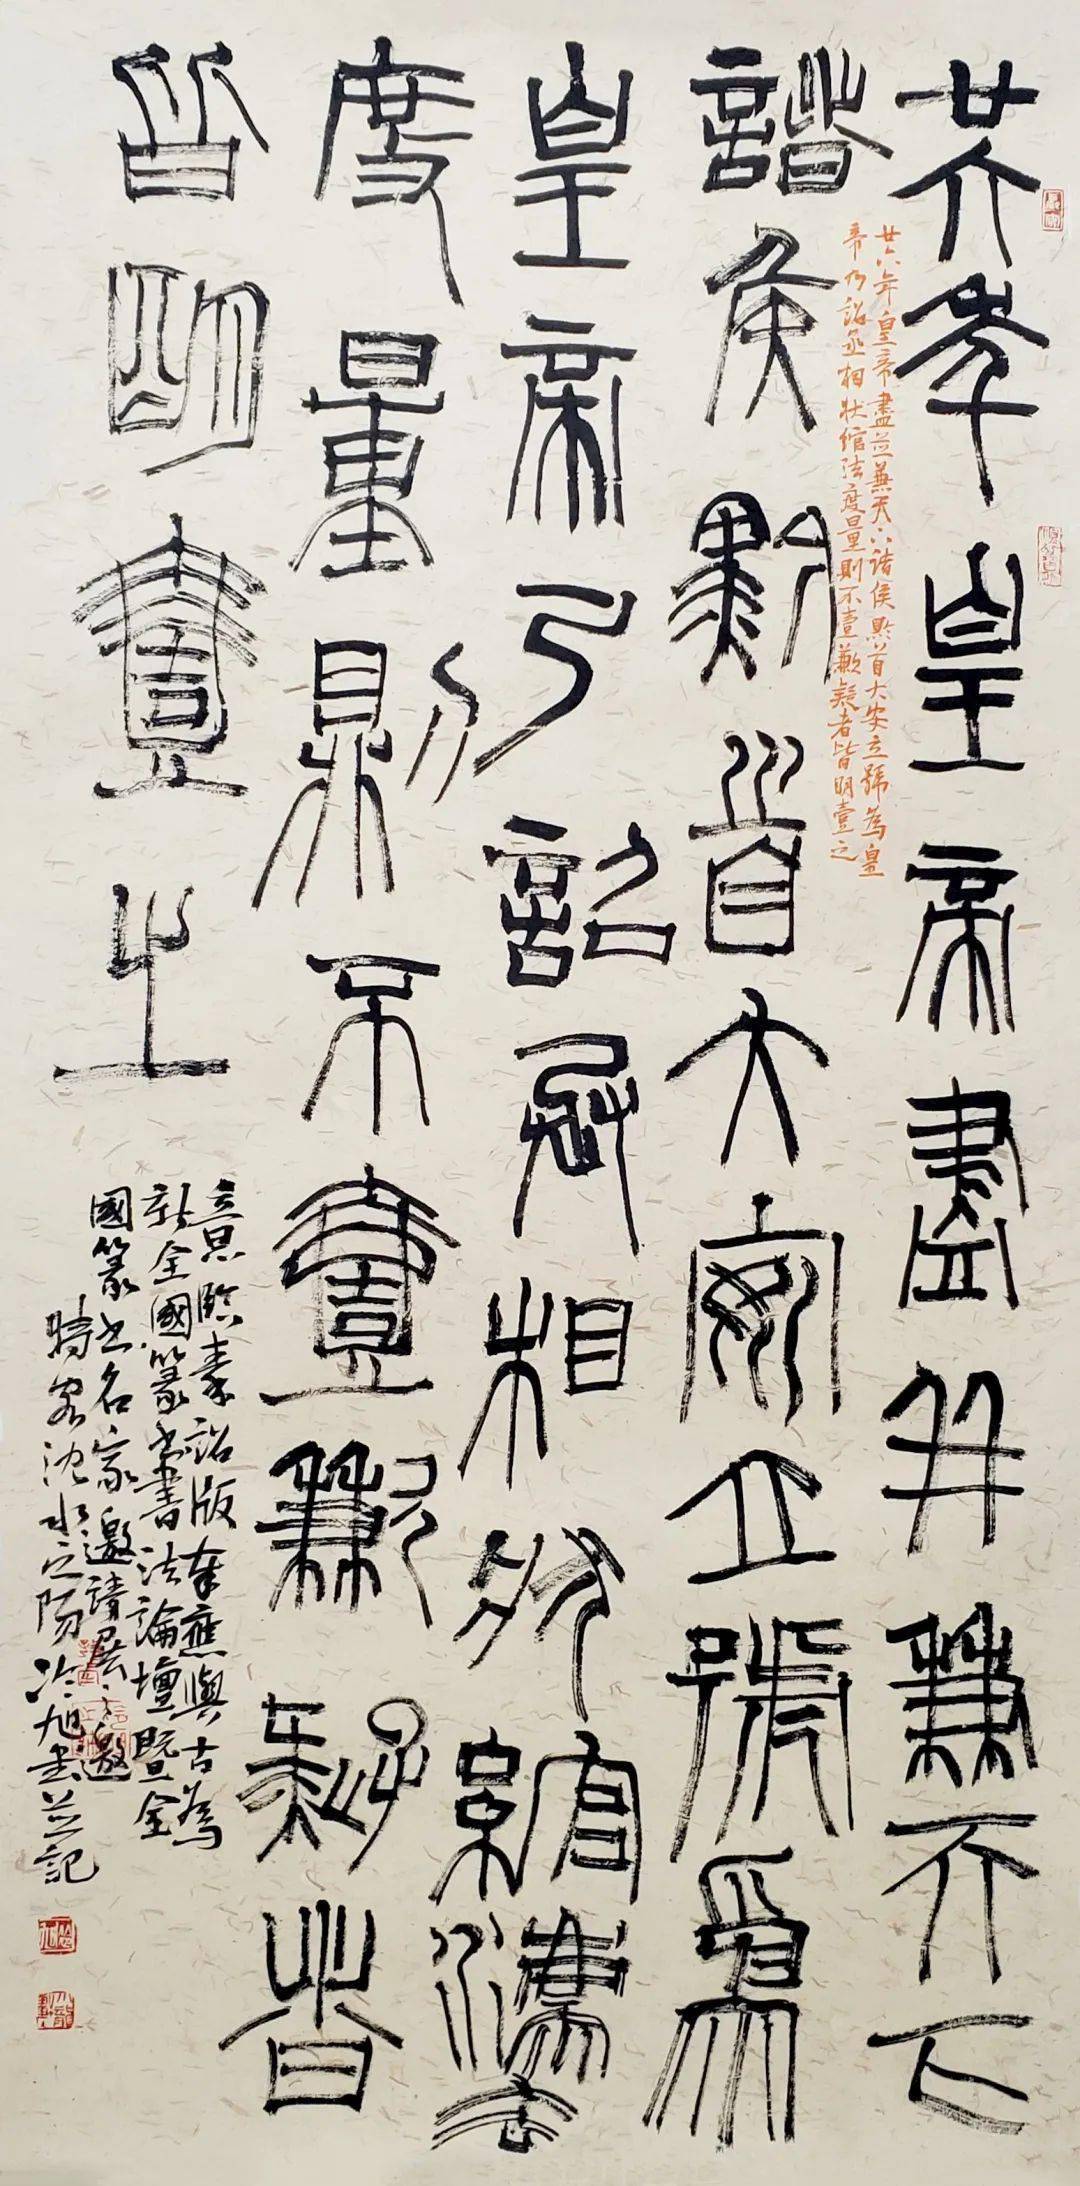 廿六年皇帝盡并兼天下
諸侯黔首大安立號爲
皇帝乃詔丞相狀綰灋
度量則不壹歉疑者
皆明壹之
廿六年皇帝盡並兼天下諸侯黔首大安立號為皇
帝乃詔丞相狀綰法度量則不壹歉疑者皆明壹之
意臨秦詔版奉應與古為
新全國篆書書法論壇暨全
國篆書名家邀請展之邀
時客沈水之陽冷旭書並記